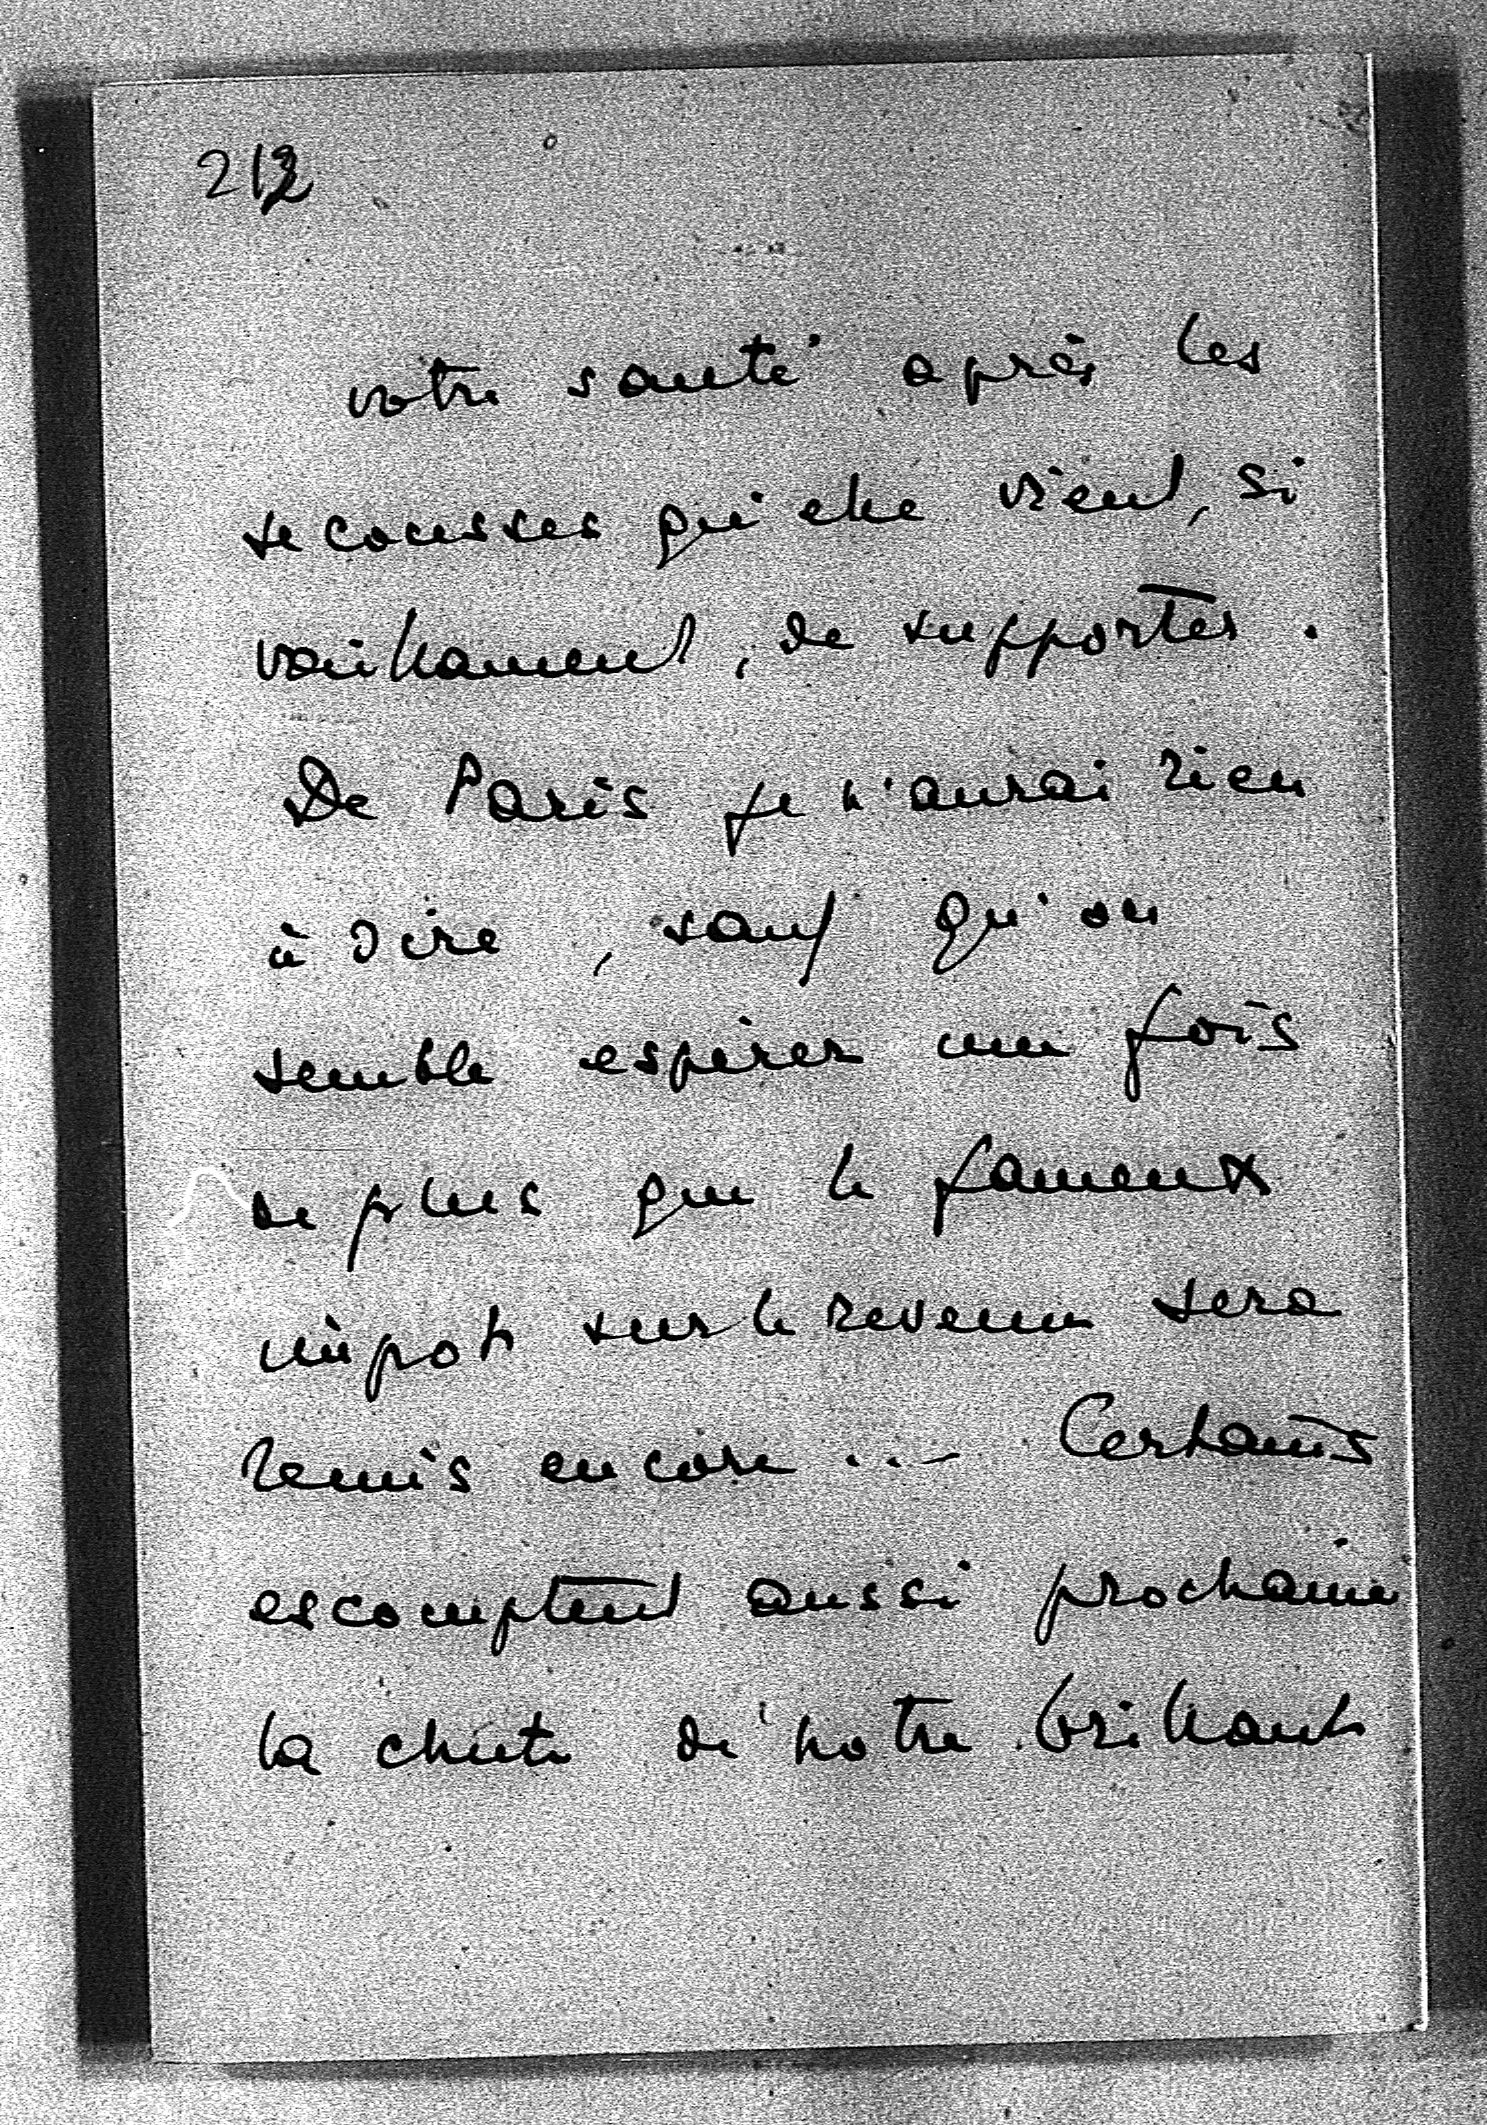 212
votre santé après les
secousses qu'elle vient, si
vaillament, de supporter.
De Paris je n'aurai rien
à dire, sauf qu'on
semble espérer une fois
de plus que le fameux
impot sur le revenu sera
remis encore ... Certains
escomptent aussi prochaine
la chute de notre brillant